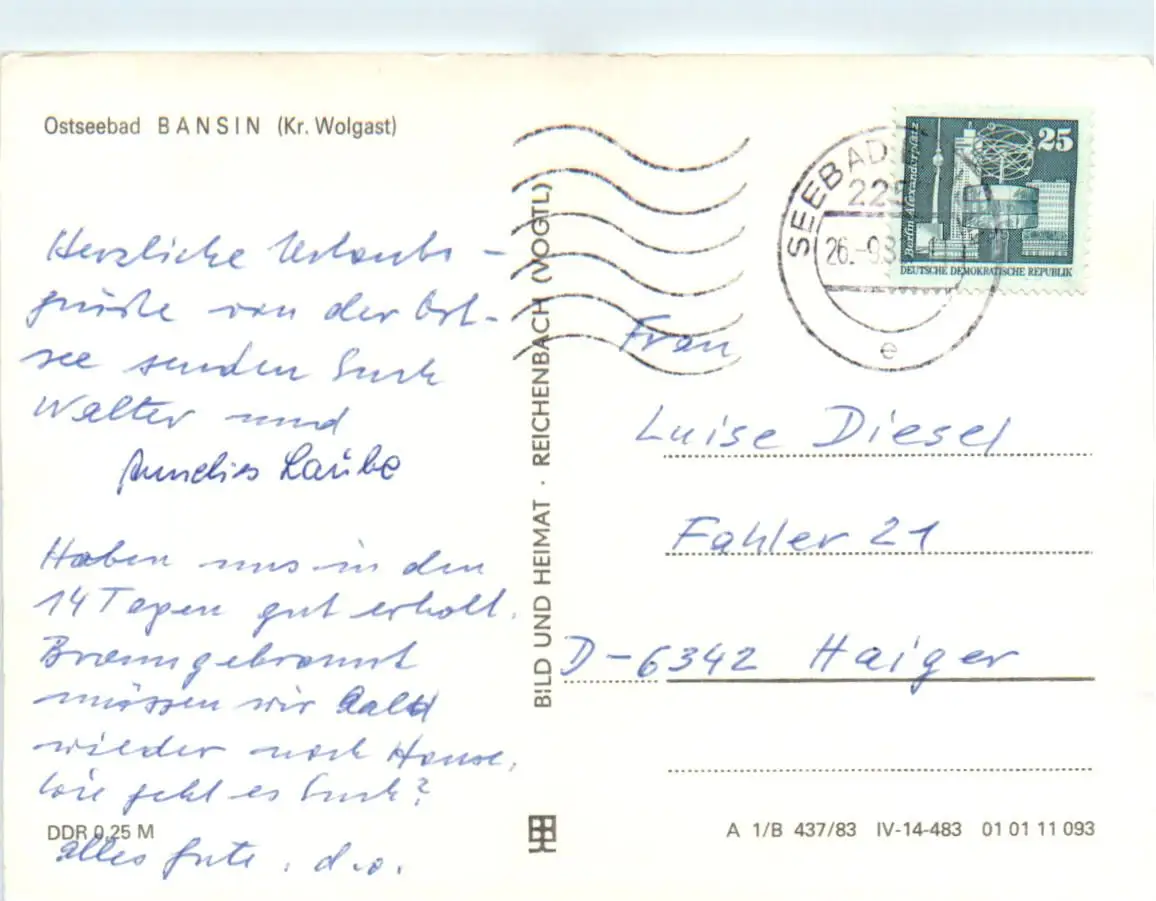 Ostseebad BANSIN (Kr. Wolgast)
Herzliche Urlaubs-
grüße von der Ost-
see senden Euch
Walter und
Annelies Laube
Haben uns in den
14 Tagen gut erholt.
Braungebrannt
müssen wir bald
wieder nach Hause.
Wie geht es Euch?
Alles Gute, d.o.
DDR 0,25 M
BILD UND HEIMAT · REICHENBACH (VOGTL)
SEEBAD
26.-9.8
e
25
Berlin-Alexanderplatz
DEUTSCHE DEMOKRATISCHE REPUBLIK
Frau
Luise Diesel
Fahler 21
D-6342 Haiger
A 1/B 437/83 IV-14-483 01 01 11 093